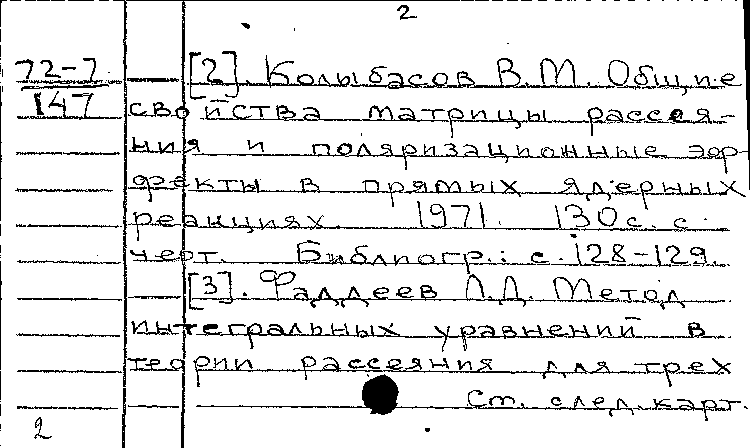 2
72-7 [2]. Колыбасов В.М. Общие
147 свойства матрицы рассея-
ния и поляризационные эф-
фекты в прямых ядерных
реакциях. 1971. 130с. с
черт. Библиогр.: с. 128-129.
[3]. Фаддеев Л.Д. Метод
интегральных уравнений в
теории рассеяния для трех
См. след. карт.
2